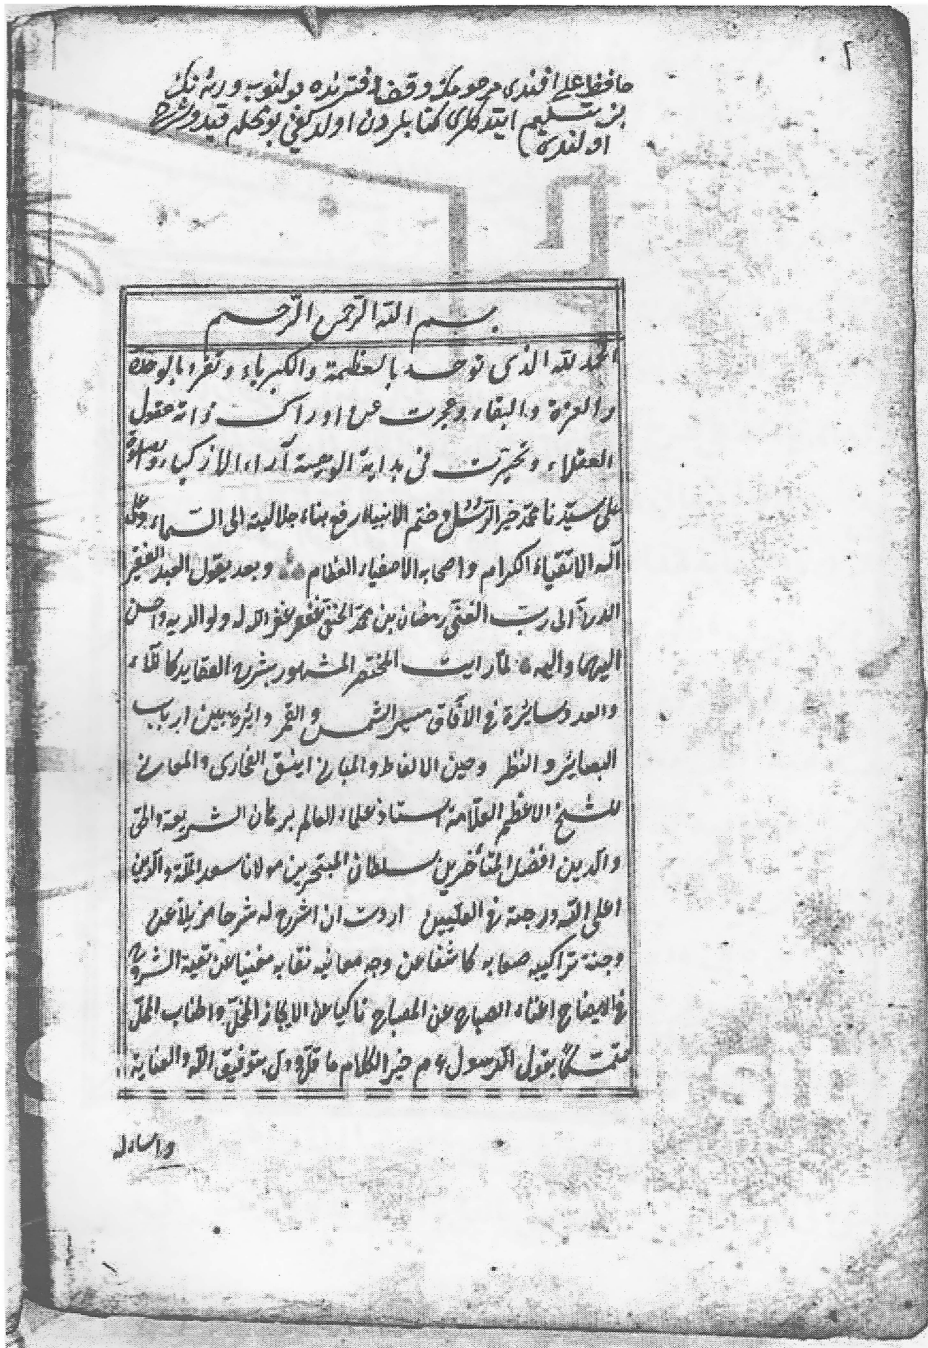 حافظ علي افندى مرحومك وقف دفترنده بولنوب ورثه نك
بزه تسليم ايتدكلرى كتابلردن اولديغى بو محله قيد و شرح
اولندى
بسم الله الرحمن الرحيم
الحمد لله الذى توحد بالعظمة والكبرياء وتفرد بالوحدة
والعزة والبقاء وعجزت عن ادراك كنه ذاته عقول
العقلاء وتحيرت فى بداية الوهيته آراء الازكياء والصلوة
على سيدنا محمد خير الرسل وختم الانبياء رفع بناء جلاليته الى السماء وعلى
آله الاتقياء الكرام واصحابه الاصفياء العظام وبعد يقول العبد الفقير
الى رب الغنى رمضان بن محمد الحنفى غفر الله له ولوالديه واحسن
اليهما واليه لما رايت المختصر المشهور بشرح العقايد كاللآلاء
والعدد سايرة فى الآفاق مسير الشمس والقمر دايرة بين ارباب
البصاير والنظر وحين الالفاظ والمبانى انيق الفحاوى والمعانى
للشيخ الاعظم العلامة استاذ علماء العالم برهان الشريعة والحق
والدين افضل المتأخرين سلطان المتبحرين مولانا سعد الملة والدين
اعلى الله درجته فى العليين اردت ان اشرح له شرحا مزيلا عن
وجنة تراكيبه صعابه كاشفا عن وجه معانيه نقابه مغنيا عن بقية الشروح
فى الايضاح اغناء الصباح عن المصباح ناكبا عن الايجاز المخل واطناب الممل
متمسكا بقول الرسول عم خير الكلام ما قل ودل بتوفيق الله والعناية
واساءله